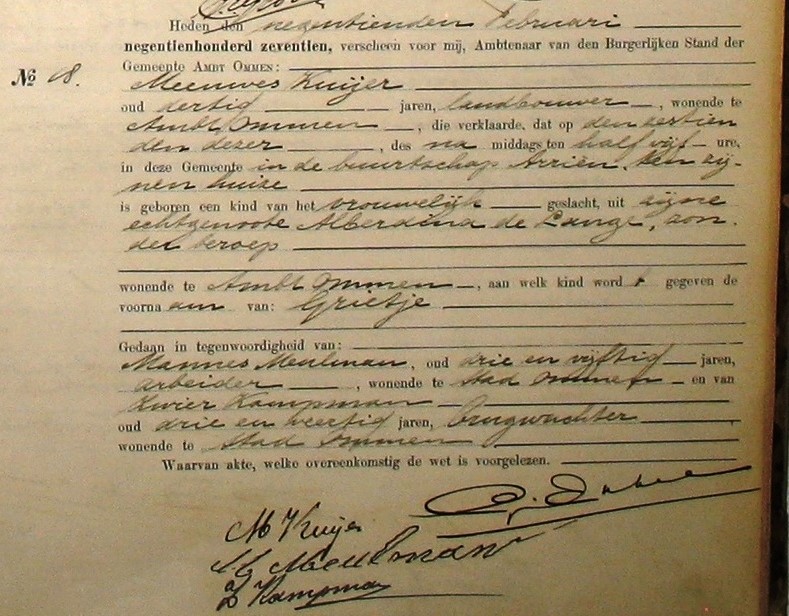 Heden den negentienden Februari
negentienhonderd zeventien, verscheen voor mij, Ambtenaar van den Burgerlijken Stand der
Gemeente AMBT OMMEN:
№ 8.
Meeuwes Kuijer
oud dertig jaren, landbouwer, wonende te
Ambt Ommen, die verklaarde, dat op den
den dezer, des na middags ten half vijf ure,
in deze Gemeente in de buurtschap Arriën, ten zij-
nen huize
is geboren een kind van het vrouwelijk geslacht, uit zijne
echtgenoote Alberdina de Lange, zon-
der beroep
wonende te Ambt Ommen, aan welk kind word t gegeven de
voorna am van: Grietje
Gedaan in tegenwoordigheid van:
Mannes Meulman, oud drie en vijftig jaren,
arbeider, wonende te Stad Ommen en van
Zwier Kampman
oud drie en veertig jaren, brugwachter
wonende te Stad Ommen
Waarvan akte, welke overeenkomstig de wet is voorgelezen.
M Kuijer
Meulman
Z Kampman